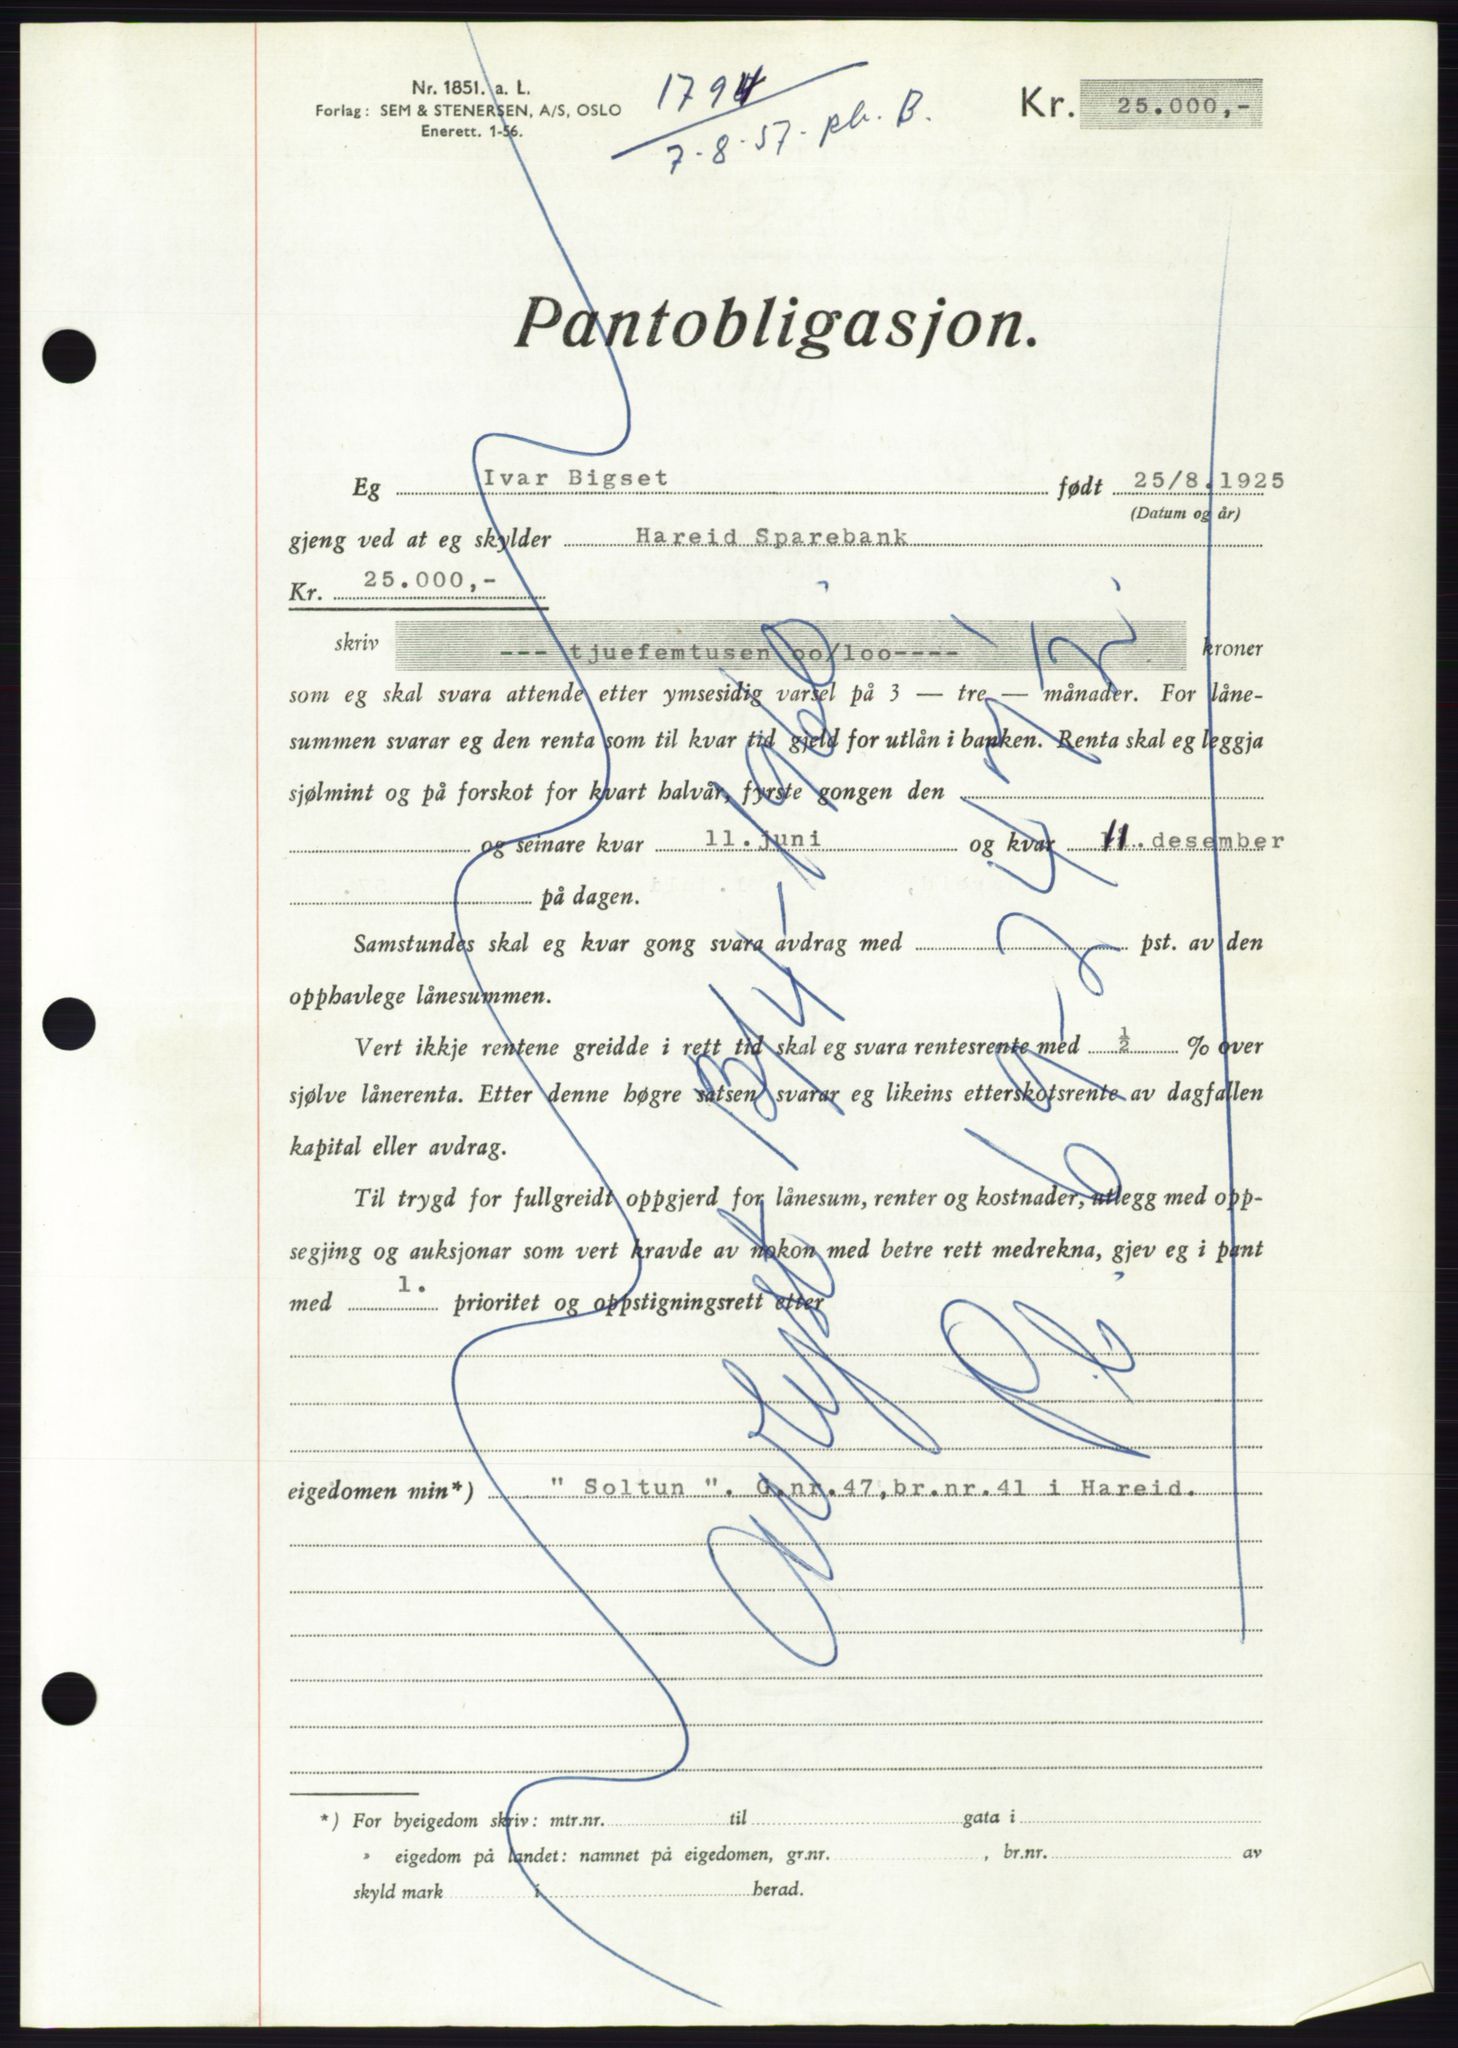 Nr. 1851. a. L.
Forlag: SEM & STENERSEN, A/S, OSLO
Enerett. 1-56.
1794
7-8-57- pk. B.
Kr. 25.000,-
Pantobligasjon.
Eg Ivar Bigset født 25/8.1925
(Datum og år)
gjeng ved at eg skylder Hareid Sparebank
Kr. 25.000,-
skriv --- tjuefemtusen oo/loo---- kroner
som eg skal svara attende etter ymsesidig varsel på 3 — tre — månader. For låne-
summen svarar eg den renta som til kvar tid gjeld for utlån i banken. Renta skal eg leggja
sjølmint og på forskot for kvart halvår, fyrste gongen den
og seinare kvar 11.juni og kvar 11.desember
på dagen.
Samstundes skal eg kvar gong svara avdrag med pst. av den
opphavlege lånesummen.
Vert ikkje rentene greidde i rett tid skal eg svara rentesrente med ½ % over
sjølve lånerenta. Etter denne høgre satsen svarar eg likeins etterskotsrente av dagfallen
kapital eller avdrag.
Til trygd for fullgreidt oppgjerd for lånesum, renter og kostnader, utlegg med opp-
segjing og auksjonar som vert kravde av nokon med betre rett medrekna, gjev eg i pant
med 1. prioritet og oppstigningsrett etter
eigedomen min*) " Soltun ". G.nr.47,br.nr.41 i Hareid.
*) For byeigedom skriv: mtr.nr. til gata i
" eigedom på landet: namnet på eigedomen, gr.nr. , br.nr. av
skyld mark i herad.
avlyst 13/4-1960.